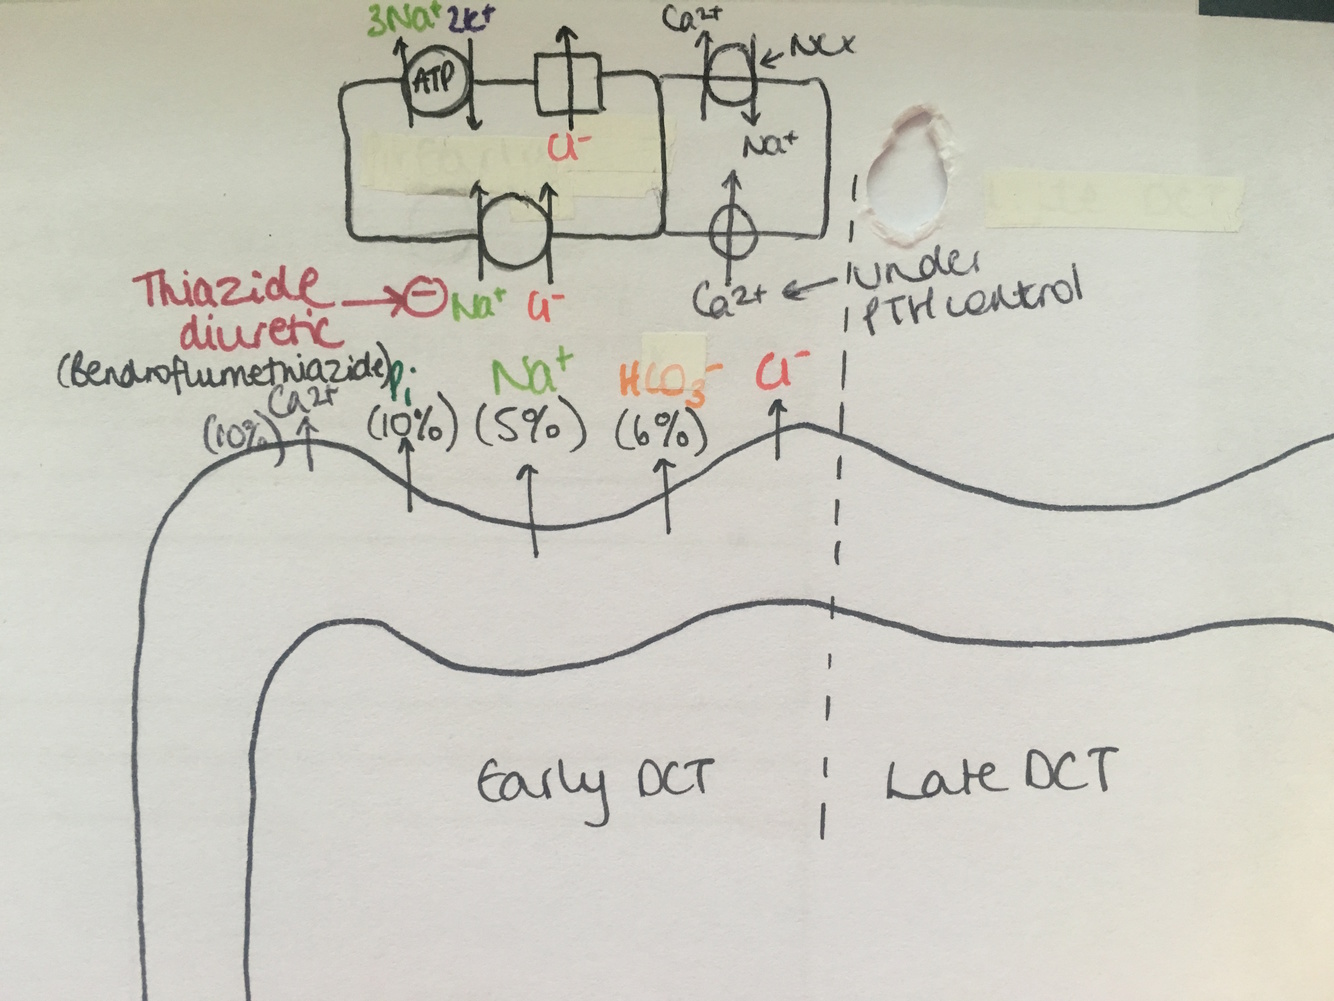 3Na⁺ 2K⁺
Ca²⁺
ATP
NCX
Cl⁻
Na⁺
Thiazide
diuretic
(Bendroflumethiazide)
Na⁺ Cl⁻
Ca²⁺
under
PTH control
Ca²⁺
(10%)
Pi
(10%)
Na⁺
(5%)
HCO₃⁻
(6%)
Cl⁻
Early DCT
Late DCT